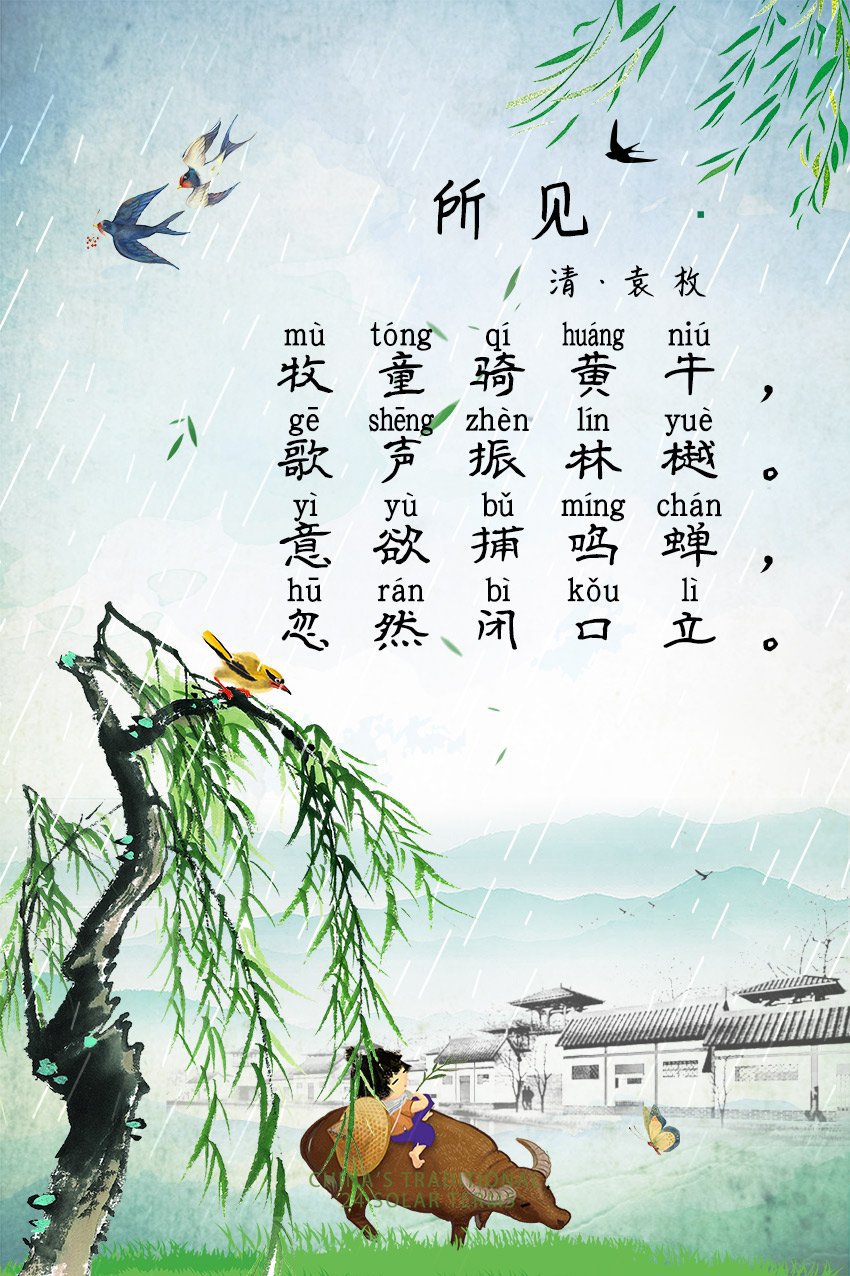 所见
清·袁枚
mù tóng qí huáng niú
牧童骑黄牛，
gē shēng zhèn lín yuè
歌声振林樾。
yì yù bǔ míng chán
意欲捕鸣蝉，
hū rán bì kǒu lì
忽然闭口立。
CHINA'S TRADITIONAL
24 SOLAR TERMS